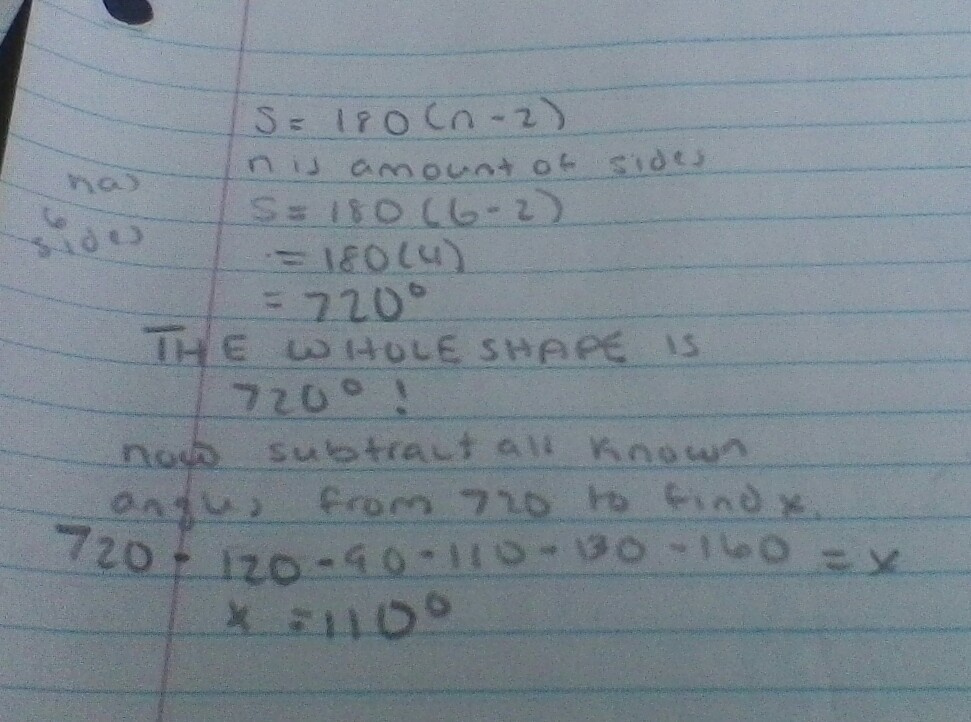 S = 180 (n - 2)
n is amount of sides
has
6
sides
S = 180 (6 - 2)
= 180 (4)
= 720°
THE WHOLE SHAPE IS
720° !
now subtract all known
angles from 720 to find x.
720 - 120 - 90 - 110 - 130 - 160 = x
x = 110°